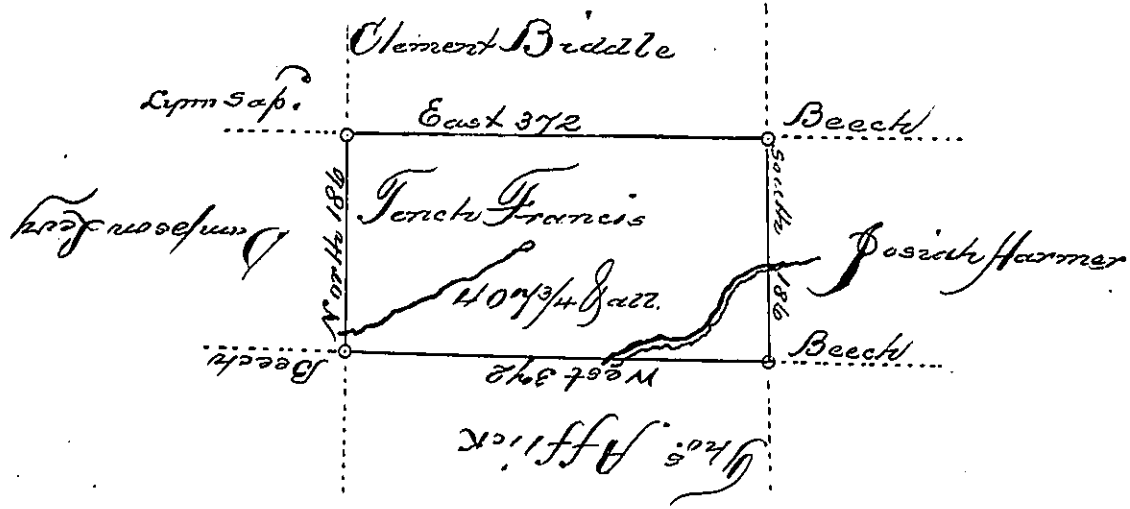 Clement Biddle
Lynn Sap.
East 372
Beech
North 186
Tench Francis
South 186
Josiah Harmer
407 3/4 & all.
Beech
West 372
Beech
Thos. Afflick